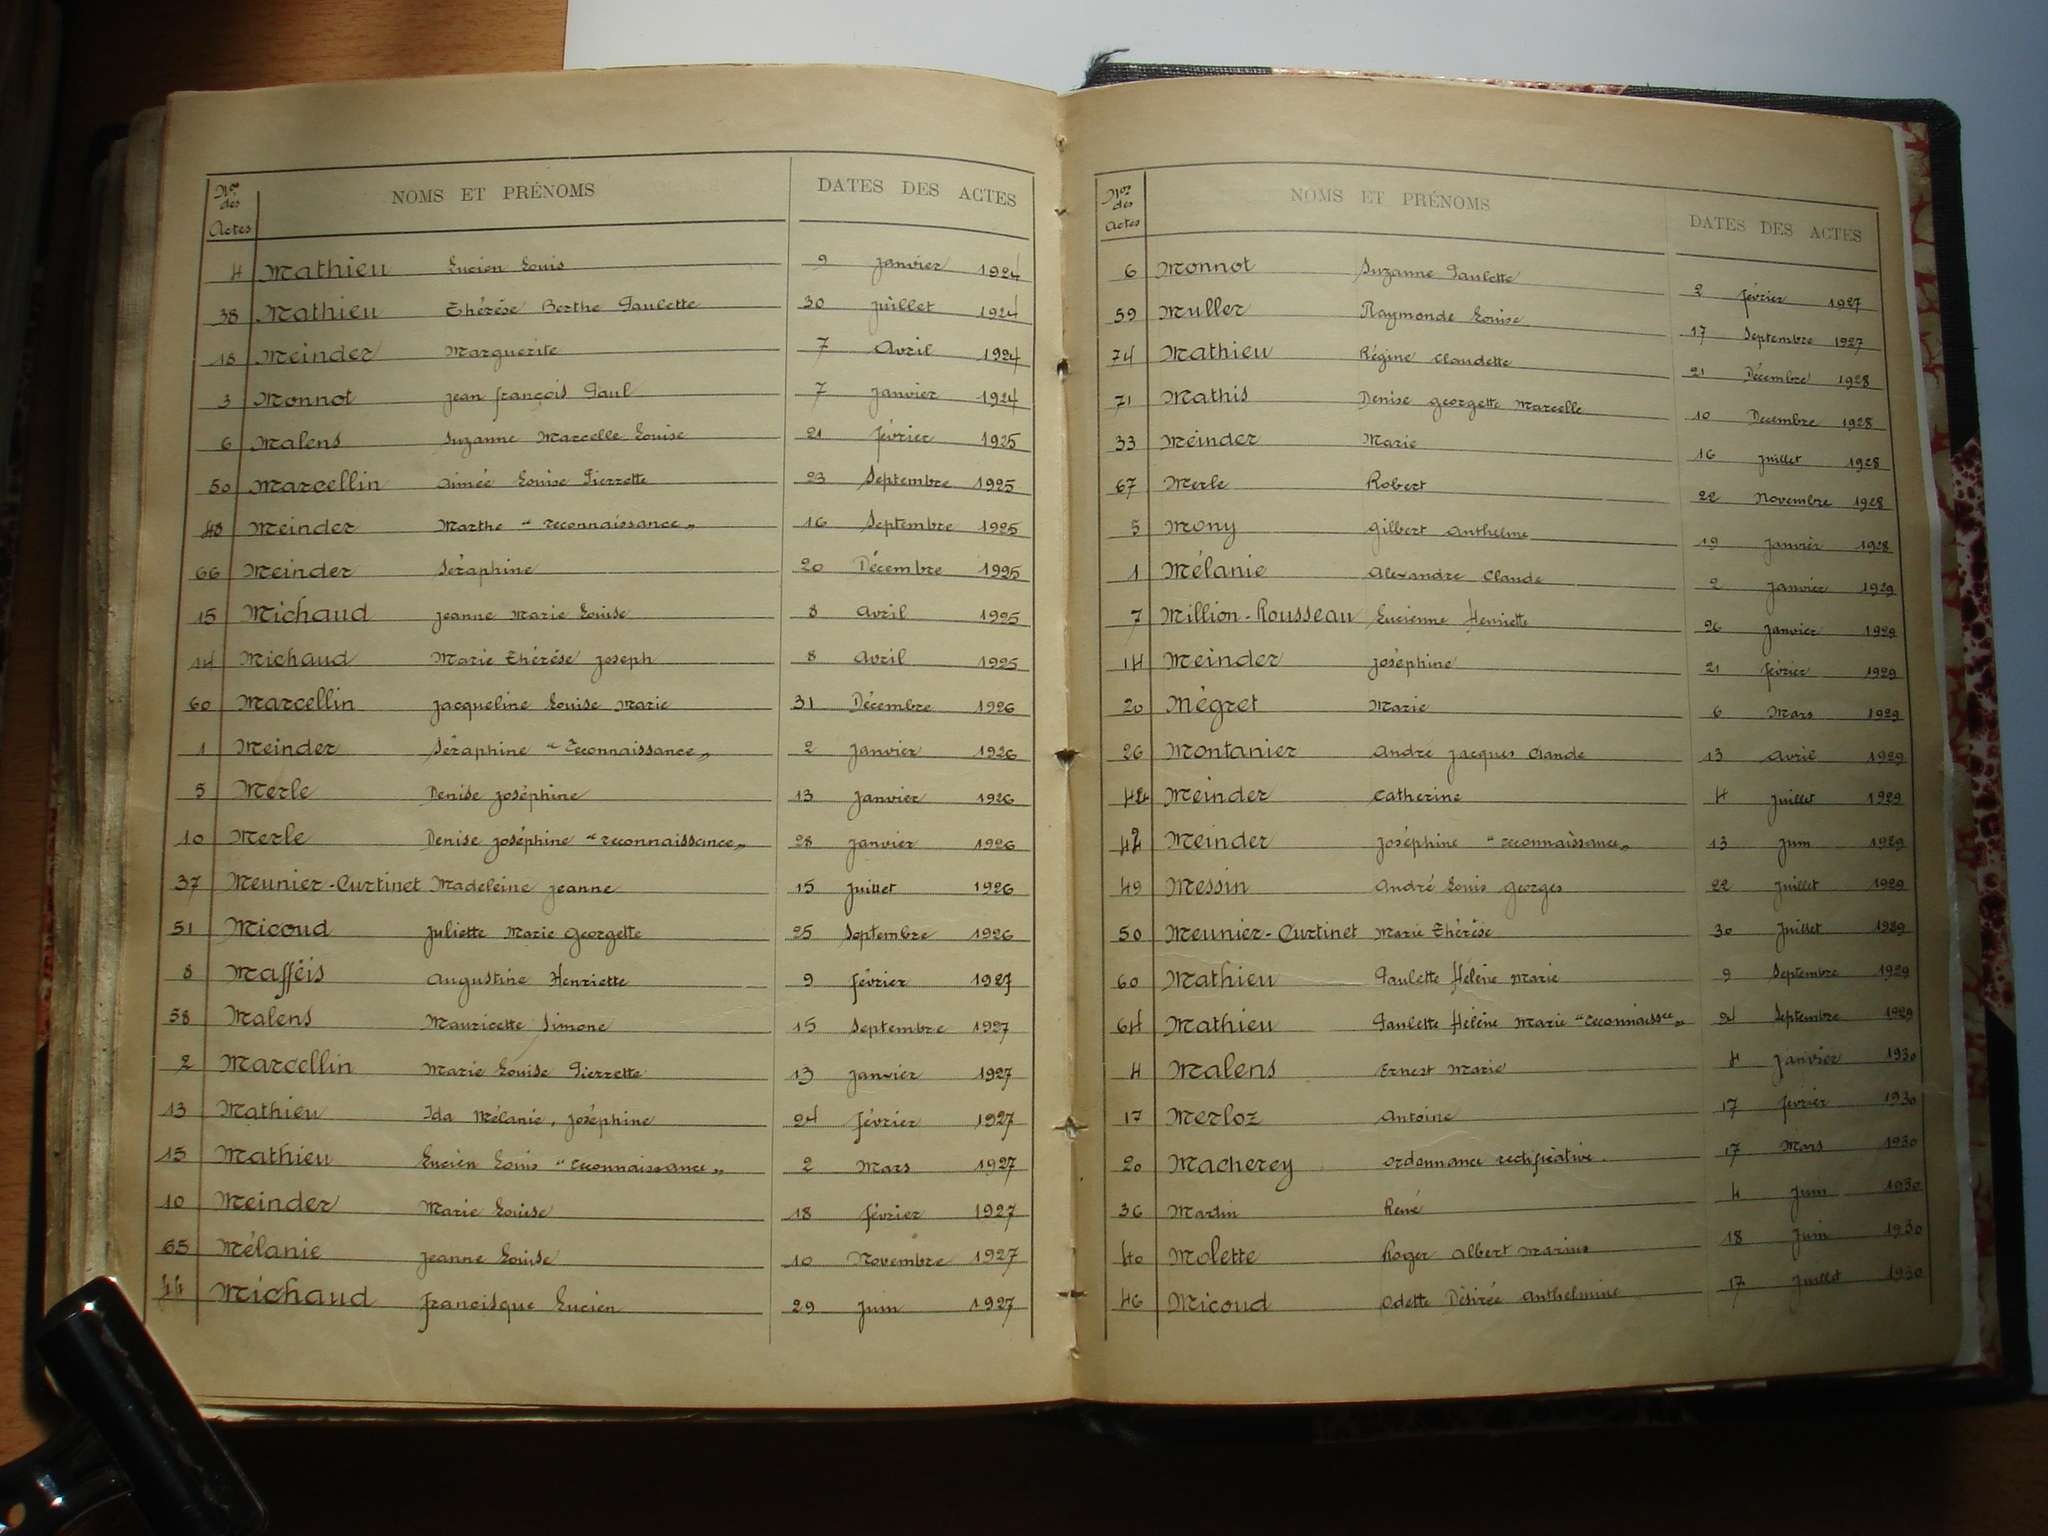 Nos des Actes NOMS ET PRÉNOMS DATES DES ACTES
4 Mathieu Lucien Louis 9 janvier 1924
38 Mathieu Thérèse Berthe Paulette 30 juillet 1924
18 Meinder Marguerite 7 Avril 1924
3 Monnot jean françois Paul 7 janvier 1924
6 Malens Suzanne Marcelle Louise 21 février 1925
50 Marcellin Aimée Louise Pierrette 23 Septembre 1925
48 Meinder Marthe "reconnaissance" 16 Septembre 1925
66 Meinder Séraphine 20 Décembre 1925
15 Michaud jeanne Marie Louise 8 Avril 1925
14 Michaud Marie Thérèse joseph 8 Avril 1925
60 Marcellin jacqueline Louise Marie 31 Décembre 1926
1 Meinder Séraphine "reconnaissance" 2 janvier 1926
5 Merle Denise joséphine 13 janvier 1926
10 Merle Denise joséphine "reconnaissance" 28 janvier 1926
37 Meunier-Curtinet Madeleine jeanne 15 juillet 1926
51 Micoud juliette Marie georgette 25 Septembre 1926
8 Mafféis Augustine Henriette 9 février 1927
58 Malens Mauricette Simone 15 Septembre 1927
2 Marcellin Marie Louise Pierrette 13 janvier 1927
13 Mathieu Ida Mélanie, joséphine 24 février 1927
15 Mathieu Lucien Louis "reconnaissance" 2 Mars 1927
10 Meinder Marie Louise 18 février 1927
65 Mélanie jeanne Louise 10 Novembre 1927
44 Michaud francisque Lucien 29 juin 1927
Nos des Actes NOMS ET PRÉNOMS DATES DES ACTES
6 Monnot Suzanne Paulette 2 février 1927
59 Muller Raymonde Louise 17 Septembre 1927
74 Mathieu Régine Claudette 21 Décembre 1928
71 Mathis Denise georgette Marcelle 10 Decembre 1928
33 Meinder Marie 16 juillet 1928
67 Merle Robert 22 Novembre 1928
5 Mony gilbert Anthelme 19 janvier 1928
1 Mélanie Alexandre Claude 2 janvier 1929
7 Million-Rousseau Lucienne Henriette 26 janvier 1929
14 Meinder joséphine 21 février 1929
20 Mégret Marie 6 Mars 1929
26 Montanier André jacques Claude 13 Avril 1929
Meinder Catherine 4 juillet 1929
42 Meinder joséphine "reconnaissance" 13 juin 1929
49 Messin André Louis georges 22 juillet 1929
50 Meunier-Curtinet Marie Thérèse 30 juillet 1929
60 Mathieu Paulette Hélène Marie 9 Septembre 1929
64 Mathieu Paulette Hélène Marie "reconnaissce" 24 Septembre 1929
4 Malens Ernest Marie 4 janvier 1930
17 Merloz Antoine 17 février 1930
20 Macherey ordonnance rectificative 17 Mars 1930
36 Martin René 4 juin 1930
40 Molette Roger Albert Marius 18 juin 1930
46 Micoud Odette Désirée Anthelmine 17 juillet 1930